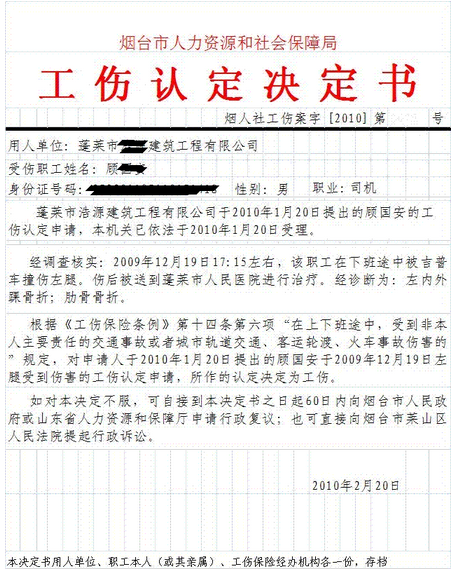 烟台市人力资源和社会保障局
工伤认定决定书
烟人社工伤案字 [2010] 第 号
用人单位: 蓬莱市 建筑工程有限公司
受伤职工姓名: 顾
身份证号码: 性别: 男 职业: 司机
蓬莱市浩源建筑工程有限公司于2010年1月20日提出的顾国安的工
伤认定申请，本机关已依法于2010年1月20日受理。
经调查核实: 2009年12月19日17:15左右，该职工在下班途中被吉普
车撞伤左腿。伤后被送到蓬莱市人民医院进行治疗。经诊断为: 左内外
踝骨折; 肋骨骨折。
根据《工伤保险条例》第十四条第六项“在上下班途中，受到非本
人主要责任的交通事故或者城市轨道交通、客运轮渡、火车事故伤害的
”规定，对申请人于2010年1月20日提出的顾国安于2009年12月19日左
腿受到伤害的工伤认定申请，所作的认定决定为工伤。
如对本决定不服，可自接到本决定书之日起60日内向烟台市人民政
府或山东省人力资源和保障厅申请行政复议; 也可直接向烟台市莱山区
人民法院提起行政诉讼。
2010年2月20日
本决定书用人单位、职工本人（或其亲属）、工伤保险经办机构各一份，存档